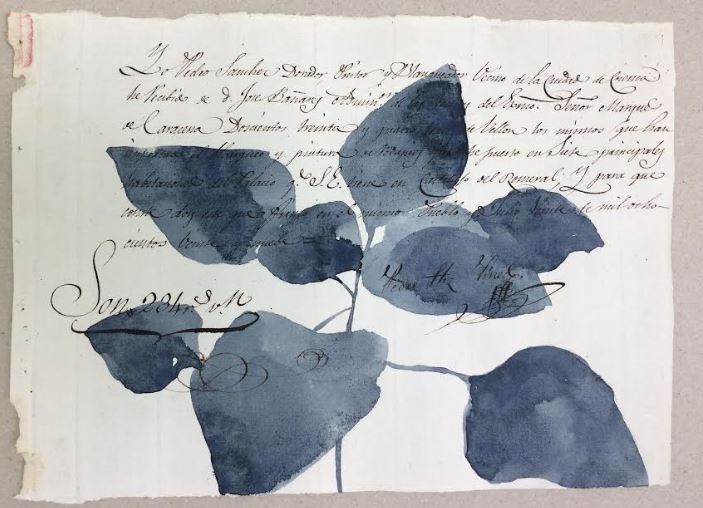 Yo Pedro Sanchez Dorador Pintor y Blanqueador Vecino de la Ciudad de Cuenca
he Recibido de D. Jose Bañares Admin.r de del Exmo. Señor Marques
de Caracena Doscientos treinta y quatro de Vellon los mismos que han
el blanqueo y pintura de puerto en Siete principales
habitaciones del Palacio q.e S. E. tiene en del Romeral, Y para que
conste doy este que firmo en el mismo Pueblo y Julio veinte de mil ocho-
cientos veinte y nueve
Pedro
Son 234 r.s v.n